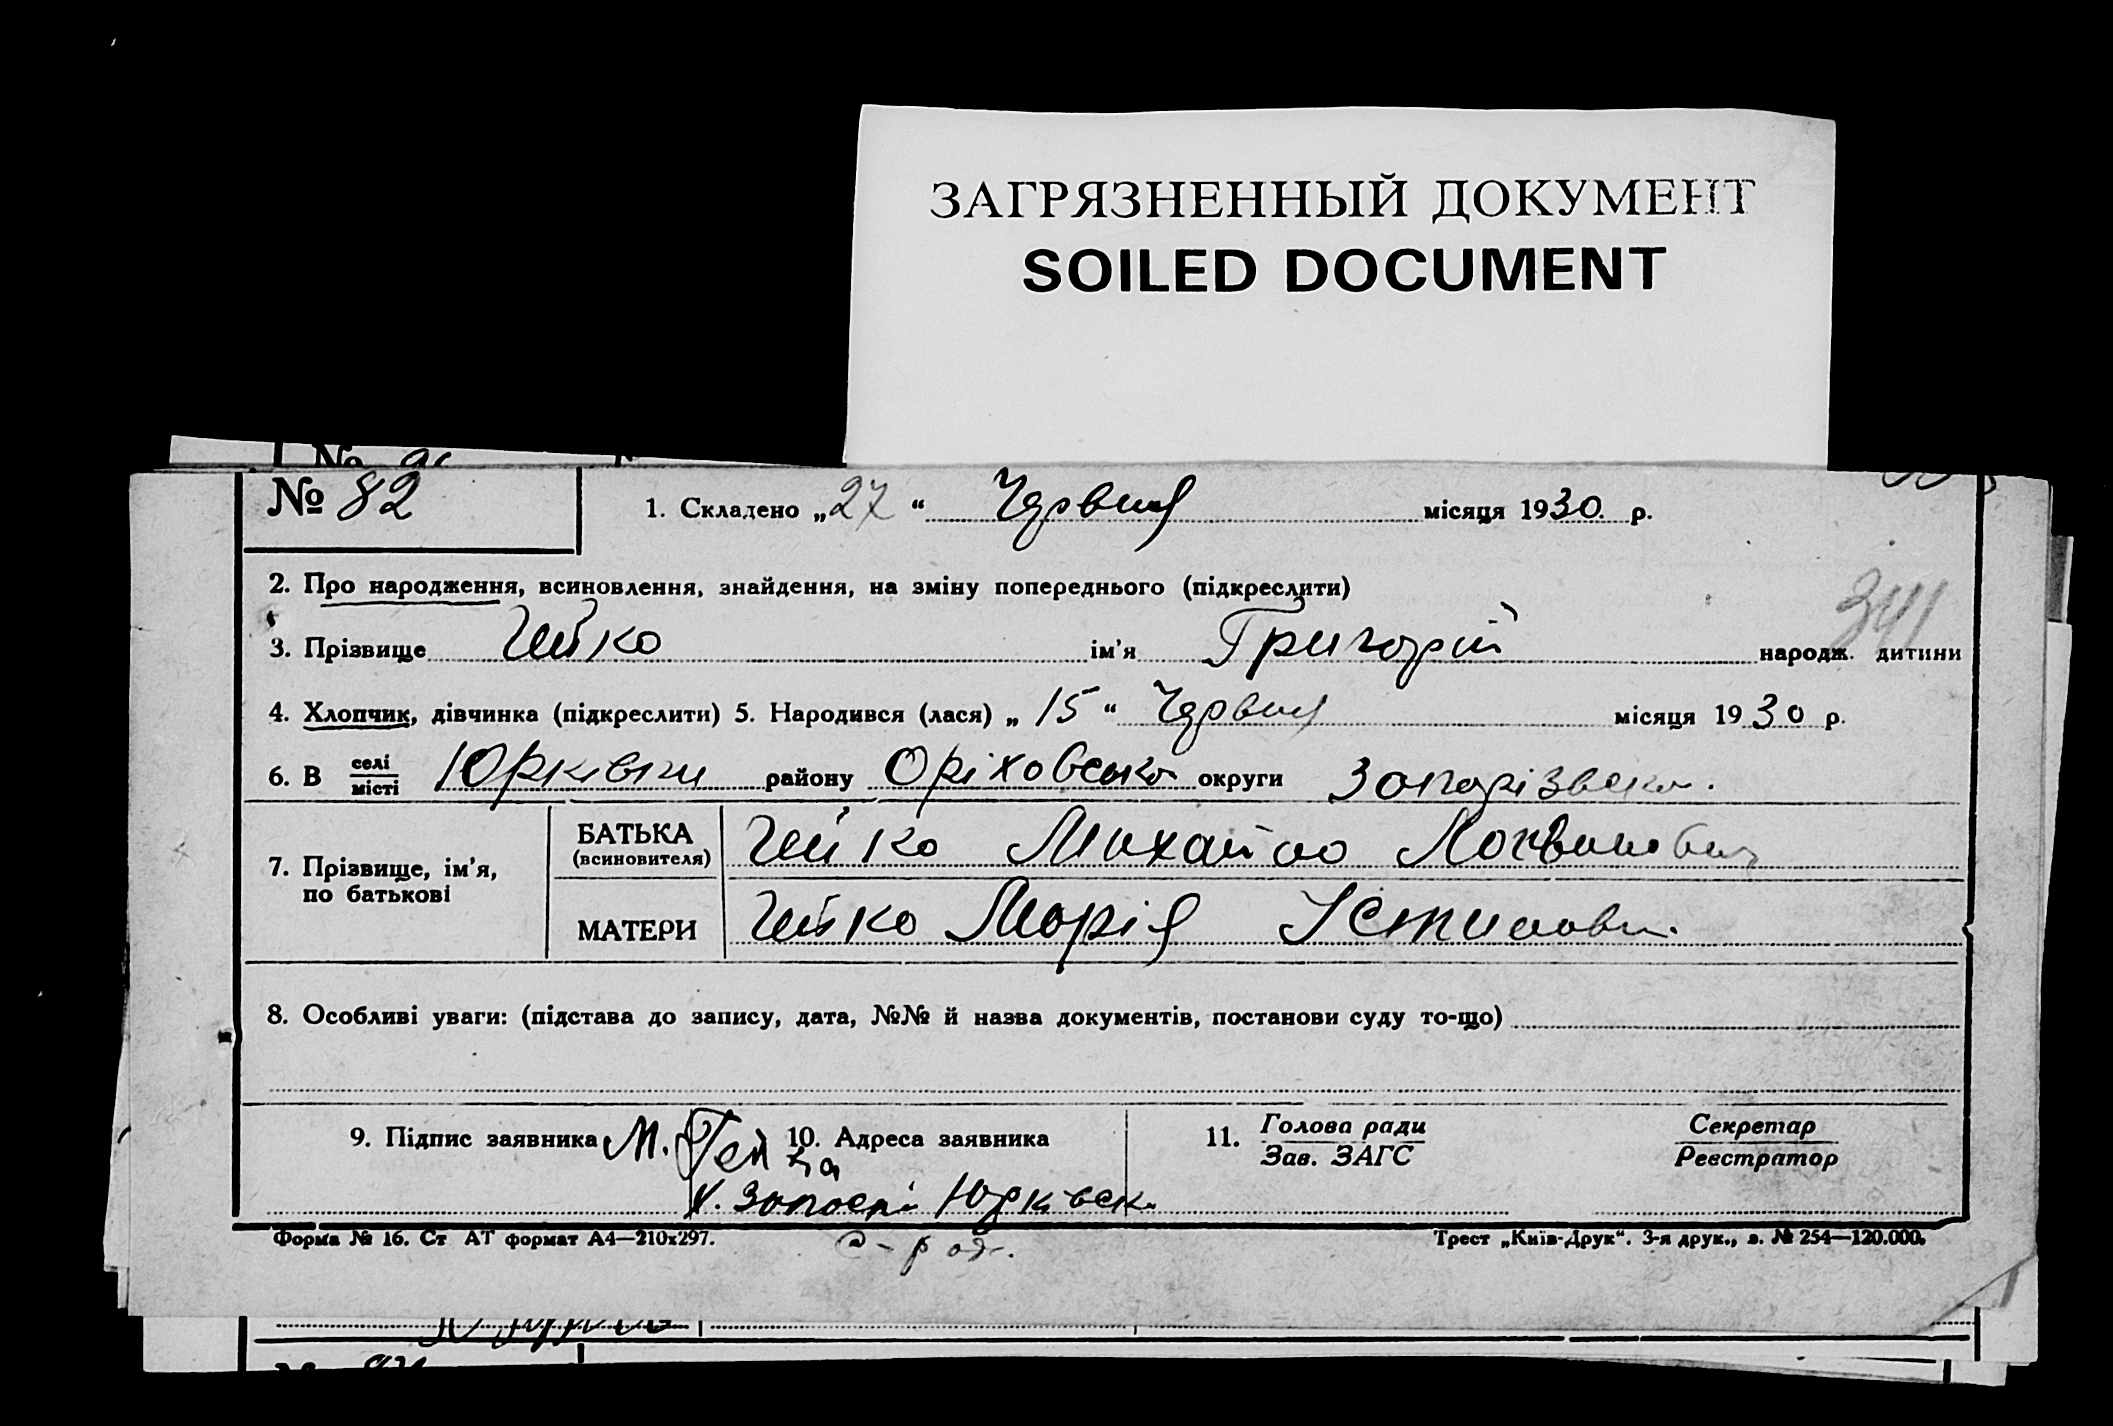 ЗАГРЯЗНЕННЫЙ ДОКУМЕНТ
SOILED DOCUMENT
№ 82 1. Складено „27“ Червня місяця 1930 р.
2. Про народження, всиновлення, знайдення, на зміну попереднього (підкреслити)
341
3. Прізвище Гейко ім'я Григорій народж. дитини
4. Хлопчик, дівчинка (підкреслити) 5. Народився (лася) „15“ Червня місяця 1930 р.
6. В селі місті Юрківки району Оріховсько округи Запорізьско.
7. Прізвище, ім'я, по батькові
БАТЬКА (всиновителя) Гейко Михайло Логвинович
МАТЕРИ Гейко Марія Устинови.
8. Особливі уваги: (підстава до запису, дата, №№ й назва документів, постанови суду то-що)
9. Підпис заявника М. Гейка 10. Адреса заявника 11. Голова ради Зав. ЗАГС Секретар Реєстратор
х. Юрківск.
с-рад.
Форма № 16. Ст АТ формат А4—210х297. Трест „Київ-Друк“. 3-я друк., з. № 254—120.000.